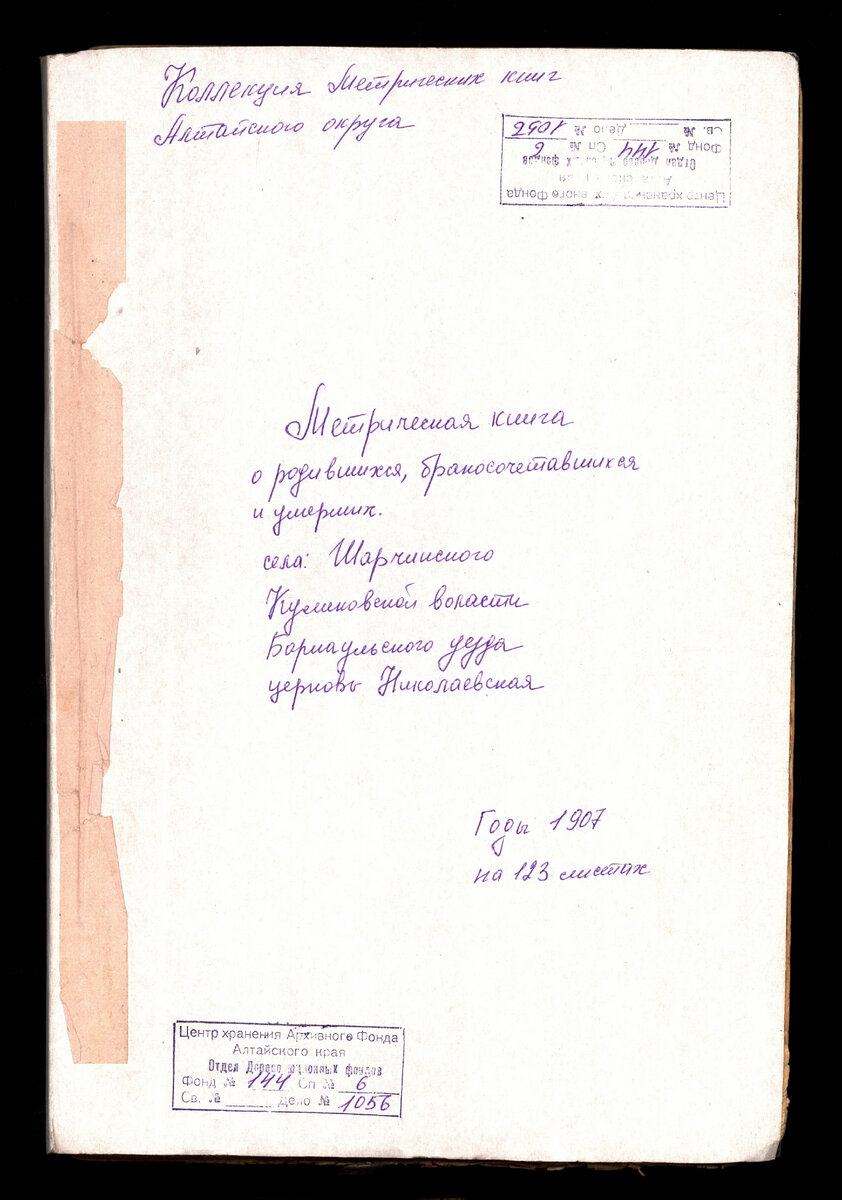 Коллекция Метрических книг
Алтайского округа
Центр хранения Фонда
Отдел фондов
Фонд № 144 Оп № 6
Св. № Дело № 1056
Метрическая книга
о родившихся, бракосочетавшихся
и умерших.
села: Шарчинского
Куликовской воласти
Барнаульского уезда
церковь Николаевская
Годы 1907
на 123 листах
Центр хранения Архивного Фонда
Алтайского края
Отдел Дореволюционных фондов
Фонд № 144 Оп № 6
Св. № Дело № 1056